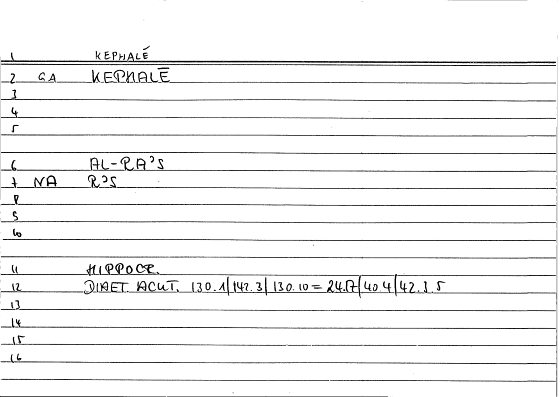 1 KEPHALÉ
2 GA KEPHALĒ
3
4
5
6 AL-RA'S
7 NA R'S
8
9
10
11 HIPPOCR.
12 DIAET. ACUT. 130.1|142.3|130.10 = 24.17|40.4|42.3.5
13
14
15
16